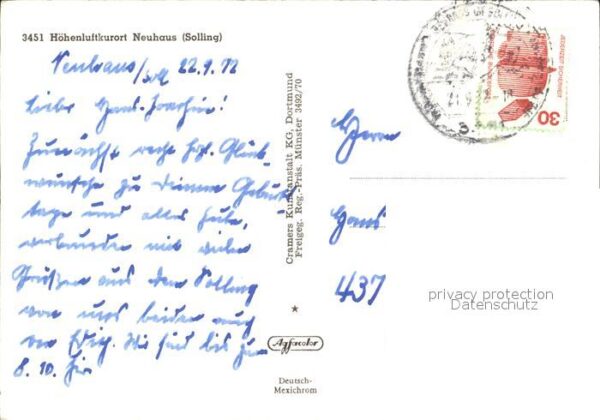 3451 Höhenluftkurort Neuhaus (Solling)
Neuhaus/Soll 22.9.72
Liebe Hans-Joachim!
Zunächst recht hzl. Glück-
wünsche zu deinem Geburts
tage und alles Gute,
verbunden mit vielen
Grüßen aus dem Solling
von uns beiden auch
von Wir sind bis zum
8. 10. hier
Cramers Kunstanstalt KG, Dortmund
Freigeg. Reg.-Präs. Münster 3492/70
Agfacolor
Deutsch-
Mexichrom
30
Herrn
Hans
437
privacy protection
Datenschutz